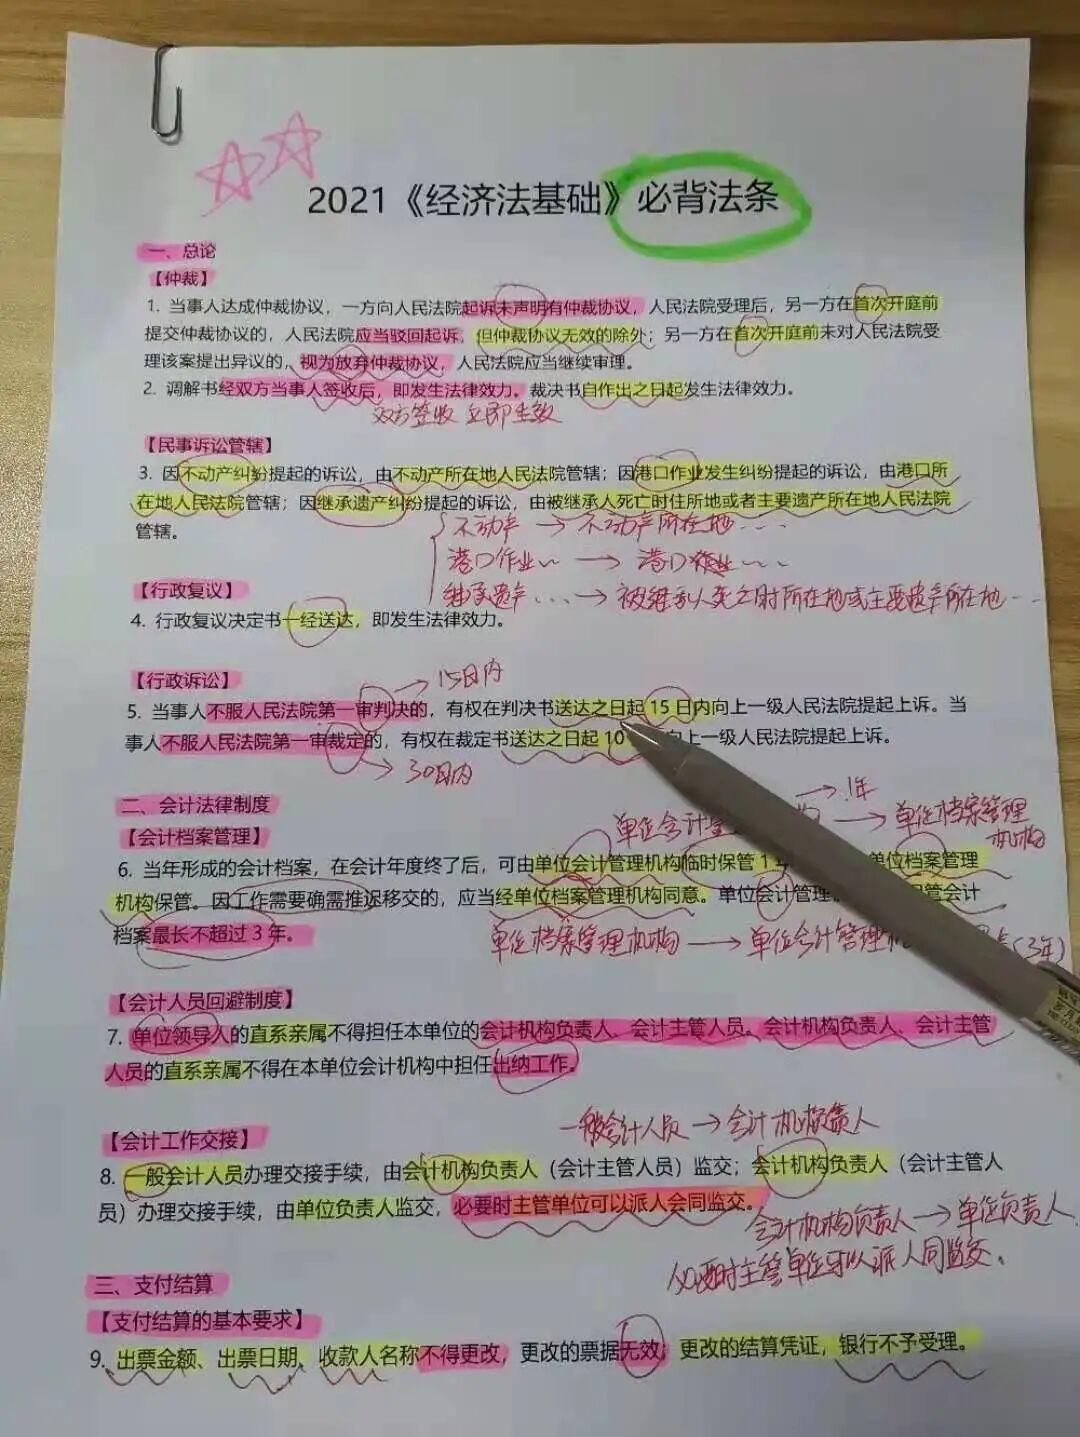 2021《经济法基础》必背法条
一、总论
【仲裁】
1. 当事人达成仲裁协议，一方向人民法院起诉未声明有仲裁协议，人民法院受理后，另一方在首次开庭前
提交仲裁协议的，人民法院应当驳回起诉，但仲裁协议无效的除外；另一方在首次开庭前未对人民法院受
理该案提出异议的，视为放弃仲裁协议，人民法院应当继续审理。
2. 调解书经双方当事人签收后，即发生法律效力。裁决书自作出之日起发生法律效力。
双方签收 立即生效
【民事诉讼管辖】
3. 因不动产纠纷提起的诉讼，由不动产所在地人民法院管辖；因港口作业发生纠纷提起的诉讼，由港口所
在地人民法院管辖；因继承遗产纠纷提起的诉讼，由被继承人死亡时住所地或者主要遗产所在地人民法院
管辖。
不动产 → 不动产所在地····
港口作业·· → 港口作业···
继承遗产... → 被继承人死亡时所在地或主要遗产所在地···
【行政复议】
4. 行政复议决定书一经送达，即发生法律效力。
【行政诉讼】
→ 15日内
5. 当事人不服人民法院第一审判决的，有权在判决书送达之日起 15 日内向上一级人民法院提起上诉。当
事人不服人民法院第一审裁定的，有权在裁定书送达之日起 10 向上一级人民法院提起上诉。
→ 30日内
二、会计法律制度
→ 1年
单位会计 → 单位档案管理
机构
【会计档案管理】
6. 当年形成的会计档案，在会计年度终了后，可由单位会计管理机构临时保管 1 单位档案管理
机构保管。因工作需要确需推迟移交的，应当经单位档案管理机构同意。单位会计管理 保管会计
档案最长不超过 3 年。
单位档案管理机构 → 单位会计管理机 (3年)
【会计人员回避制度】
7. 单位领导人的直系亲属不得担任本单位的会计机构负责人、会计主管人员。会计机构负责人、会计主管
人员的直系亲属不得在本单位会计机构中担任出纳工作。
一般会计人员 → 会计机构负责人
【会计工作交接】
8. 一般会计人员办理交接手续，由会计机构负责人（会计主管人员）监交；会计机构负责人（会计主管人
员）办理交接手续，由单位负责人监交，必要时主管单位可以派人会同监交。
会计机构负责人 → 单位负责人
必要时主管单位可以派人同监交。
三、支付结算
【支付结算的基本要求】
9. 出票金额、出票日期、收款人名称不得更改，更改的票据无效；更改的结算凭证，银行不予受理。